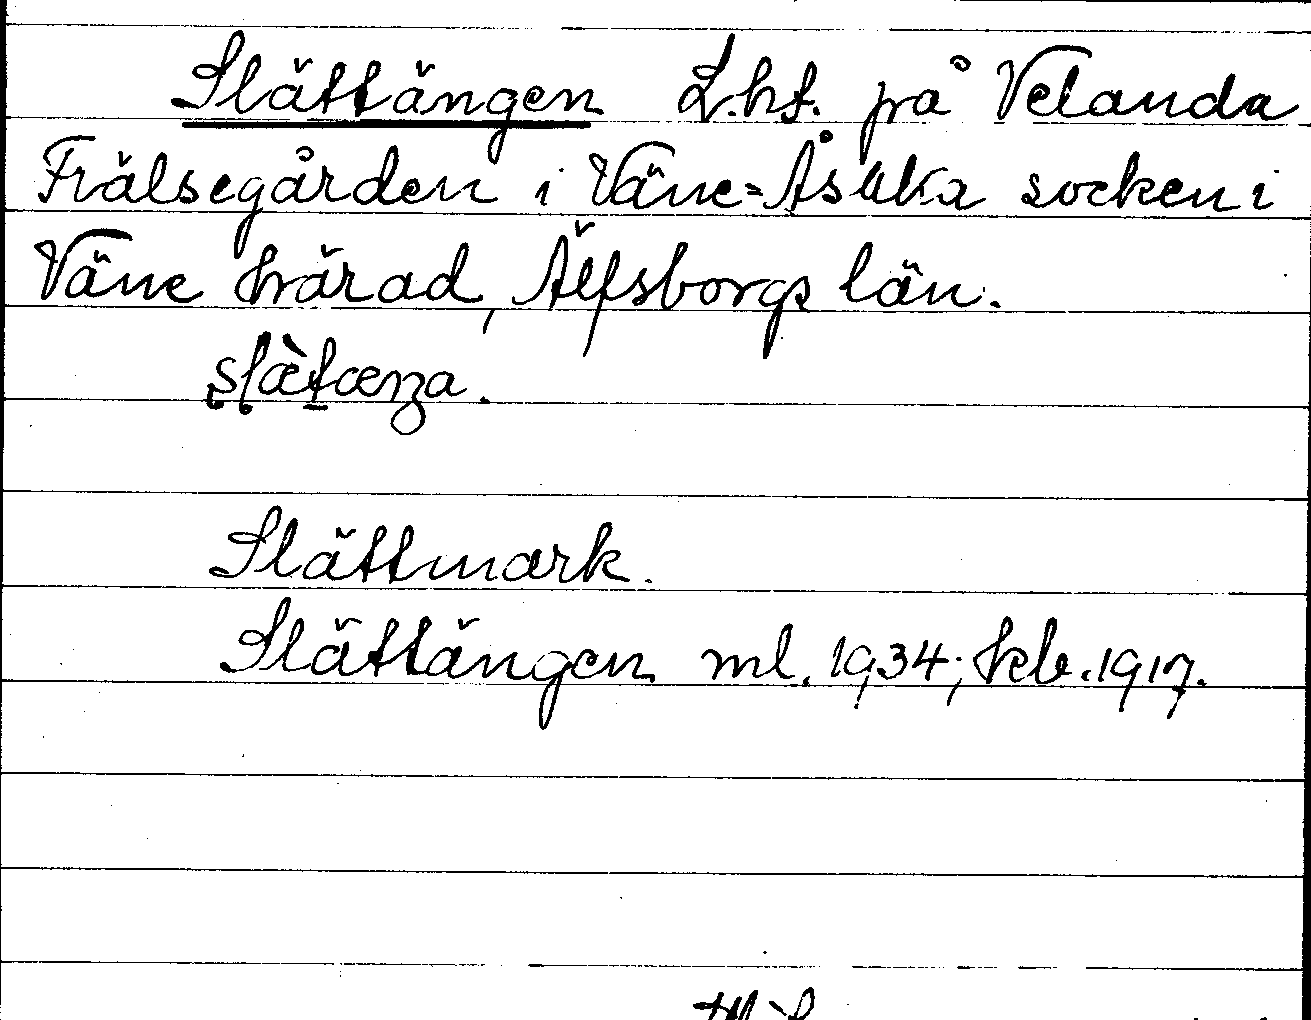 Slättängen L.ht. på Velanda
Frälsegården i Väne-Åsaka socken i
Väne härad, Älfsborgs län.
slæ̀tæŋa.
Slättmark.
Slättängen ml. 1934; kb. 1917.